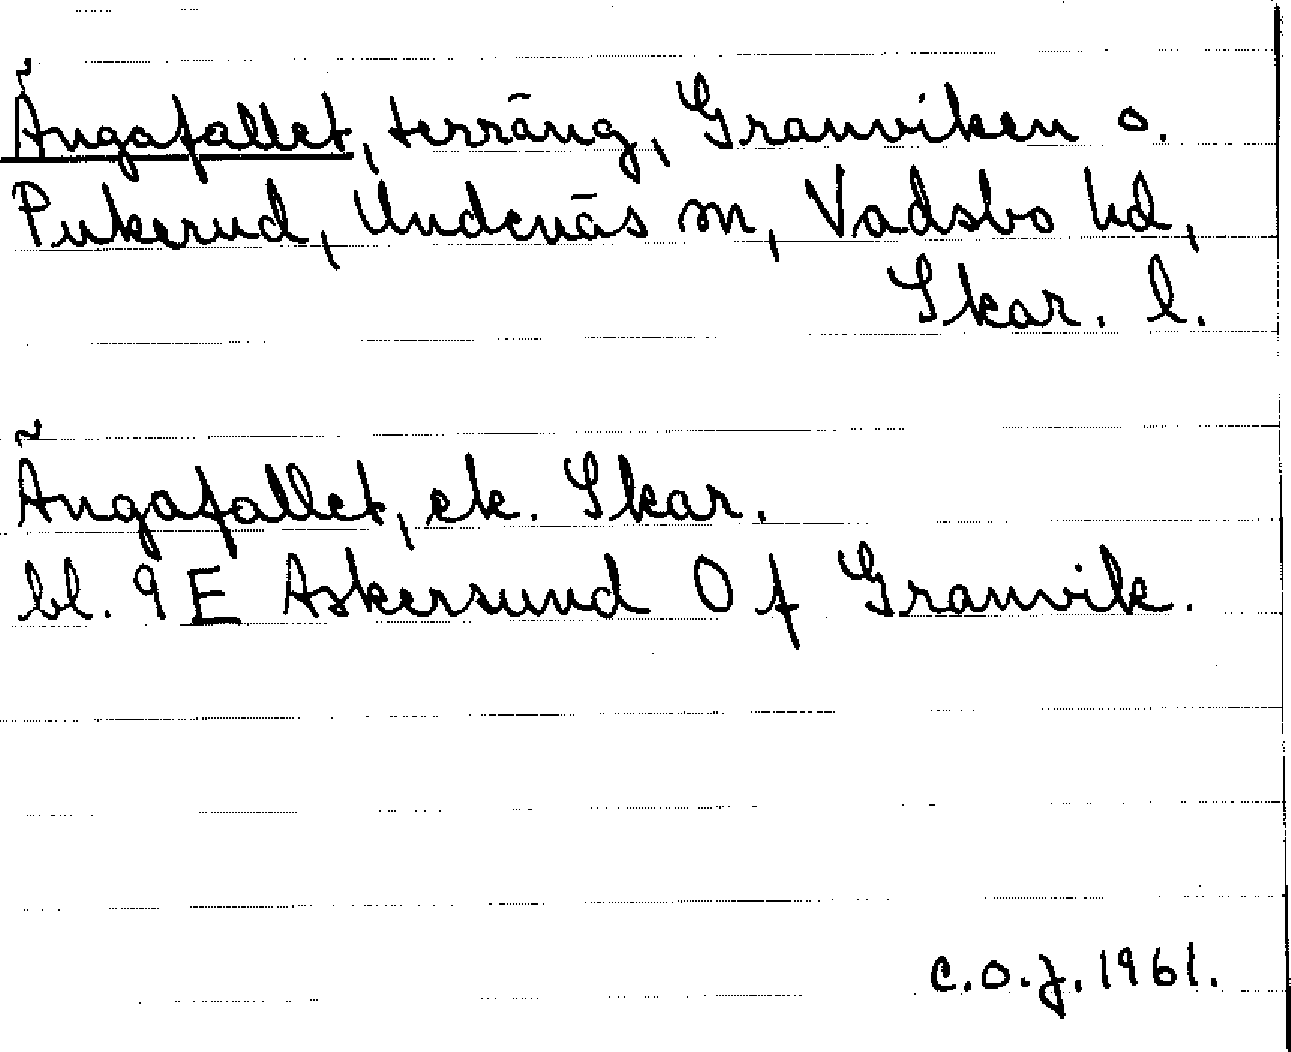 Ängafallet, terräng, Granviken o.
Pukerud, Undenäs sn, Vadsbo hd,
Skar. l.
Ängafallet, ek. Skar.
bl. 9E Askersund 0 f Granvik.
C.O.J. 1961.